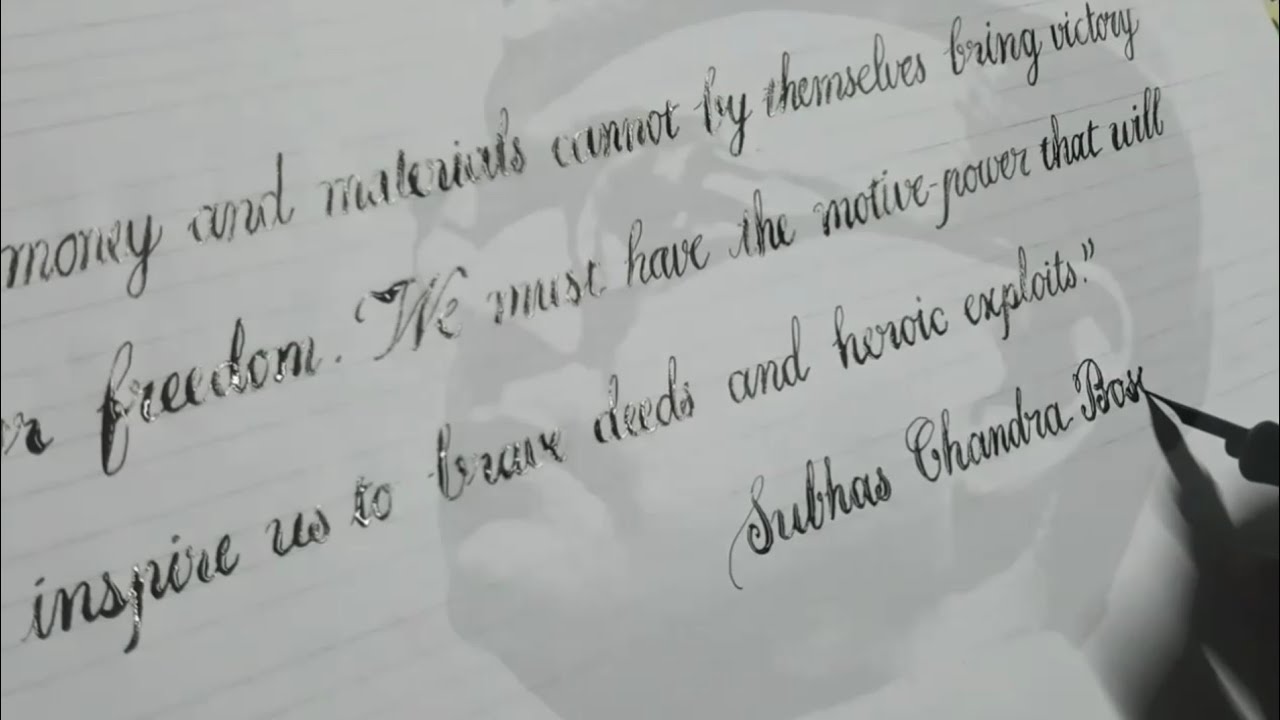 money and materials cannot by themselves bring victory
r freedom. We must have the motive-power that will
inspire us to brave deeds and heroic exploits."
Subhas Chandra Bos